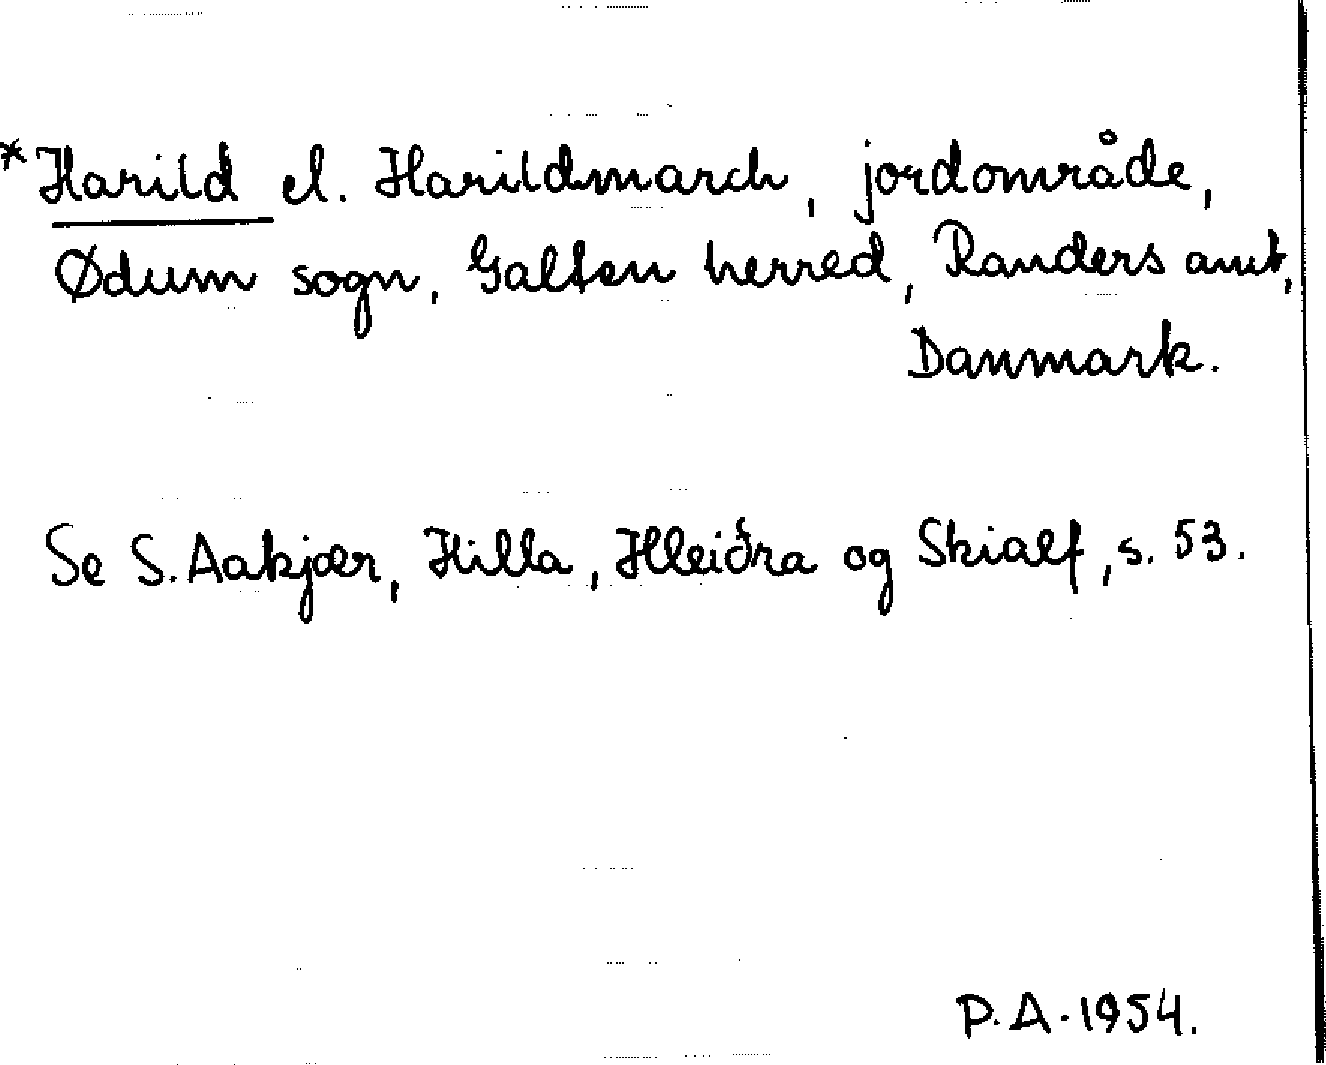 *Harild el. Harildmarch, jordområde,
Ødum sogn, Galten herred, Randers amt,
Danmark.
Se S. Aakjær, Hilla, Hleiðra og Skialf, s. 53.
P.A. 1954.